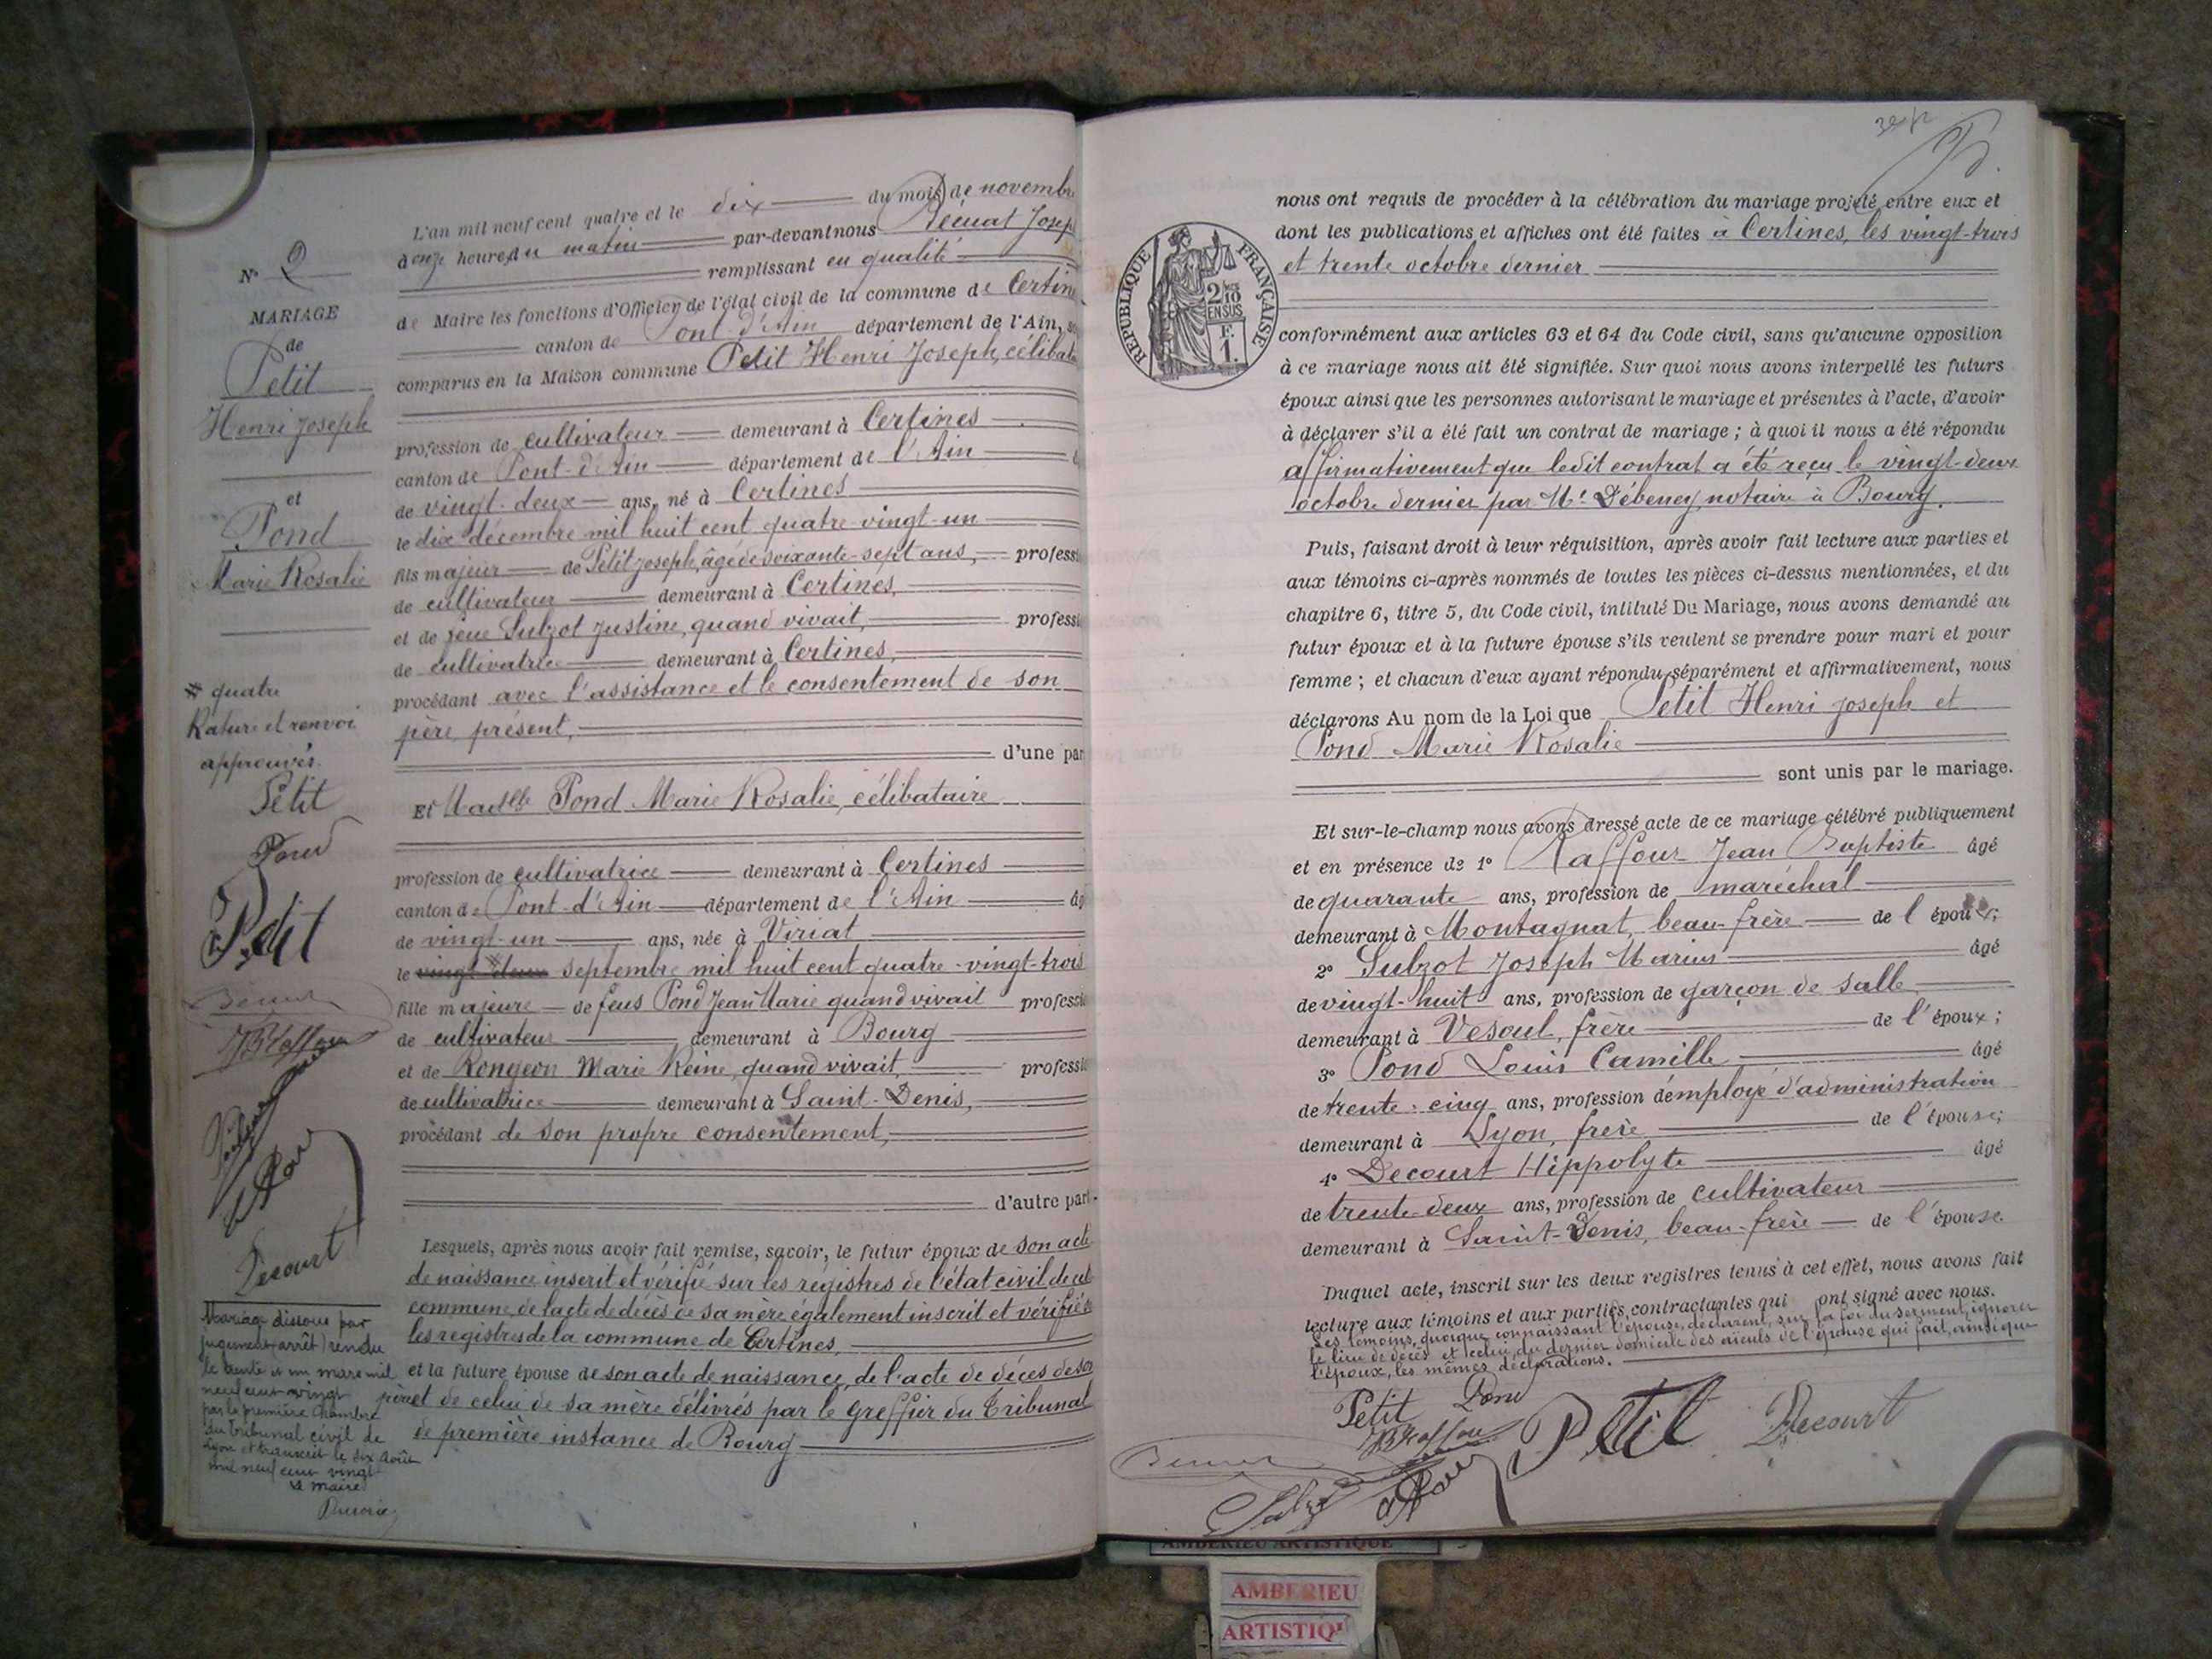 N° 2
MARIAGE
de
Petit
Henri Joseph
et
Pond
Marie Rosalie
# quatre
Rature et renvoi
approuvés.
Petit
Pond
Petit
Decourt
Mariage dissous par
jugement (arrêt) rendu
le trente et un mars mil
neuf cent vingt
par la première chambre
du tribunal civil de
Lyon et transcrit le dix août
mil neuf cent vingt
Le maire
L'an mil neuf cent quatre et le dix du mois de novembre
à onze heures du matin par-devant nous Joseph
remplissant en qualité
de Maire les fonctions d'Officier de l'état civil de la commune de Certines
canton de Pont-d'Ain département de l'Ain, so
comparus en la Maison commune Petit Henri Joseph, céliba
profession de cultivateur demeurant à Certines
canton de Pont-d'Ain département de l'Ain
de vingt-deux ans, né à Certines
le dix décembre mil huit cent quatre-vingt-un
fils majeur de Petit Joseph, âgé de soixante-sept ans, professi
de cultivateur demeurant à Certines,
et de feue Subzot Justine, quand vivait, professi
de cultivatrice demeurant à Certines,
procédant avec l'assistance et le consentement de son
père, présent,
d'une par
Et Madelle Pond Marie Rosalie, célibataire
profession de cultivatrice demeurant à Certines
canton de Pont-d'Ain département de l'Ain âg
de vingt-un ans, née à Viriat
le vingt deux septembre mil huit cent quatre-vingt-trois
fille majeure de feus Pond Jean Marie quand vivait professi
de cultivateur demeurant à Bourg
et de Rongeon Marie Reine, quand vivait, professi
de cultivatrice demeurant à Saint-Denis,
procédant de son propre consentement,
d'autre part
Lesquels, après nous avoir fait remise, savoir, le futur époux de son acte
de naissance inscrit et vérifié sur les registres de l'état civil de cet
commune, de l'acte de décès de sa mère également inscrit et vérifié
les registres de la commune de Certines,
et la future épouse de son acte de naissance, de l'acte de décès de son
père et de celui de sa mère délivrés par le Greffier du Tribunal
de première instance de Bourg
REPUBLIQUE FRANÇAISE
2/10 EN SUS
F. 1.
nous ont requis de procéder à la célébration du mariage projeté entre eux et
dont les publications et affiches ont été faites à Certines, les vingt-trois
et trente octobre dernier
conformément aux articles 63 et 64 du Code civil, sans qu'aucune opposition
à ce mariage nous ait été signifiée. Sur quoi nous avons interpellé les futurs
époux ainsi que les personnes autorisant le mariage et présentes à l'acte, d'avoir
à déclarer s'il a été fait un contrat de mariage ; à quoi il nous a été répondu
affirmativement que ledit contrat a été reçu le vingt-deux
octobre dernier par Me Débeney, notaire à Bourg.
Puis, faisant droit à leur réquisition, après avoir fait lecture aux parties et
aux témoins ci-après nommés de toutes les pièces ci-dessus mentionnées, et du
chapitre 6, titre 5, du Code civil, intitulé Du Mariage, nous avons demandé au
futur époux et à la future épouse s'ils veulent se prendre pour mari et pour
femme ; et chacun d'eux ayant répondu séparément et affirmativement, nous
déclarons Au nom de la Loi que Petit Henri Joseph et
Pond Marie Rosalie
sont unis par le mariage.
Et sur-le-champ nous avons dressé acte de ce mariage célébré publiquement
et en présence de 1° Raffour Jean Baptiste âgé
de quarante ans, profession de maréchal
demeurant à Montagnat, beau-frère de l'époux;
2° Subzot Joseph Marius âgé
de vingt-huit ans, profession de garçon de salle
demeurant à Vesoul, frère de l'époux;
3° Pond Louis Camille âgé
de trente-cinq ans, profession d'employé d'administration
demeurant à Lyon, frère de l'épouse;
4° Decourt Hippolyte âgé
de trente-deux ans, profession de cultivateur
demeurant à Saint-Denis, beau-frère de l'épouse.
Duquel acte, inscrit sur les deux registres tenus à cet effet, nous avons fait
lecture aux témoins et aux parties contractantes qui ont signé avec nous.
Les témoins, quoique connaissant l'épouse, déclarent, sur la foi du serment, ignorer
le lieu de décès et celui du dernier domicile des aïeuls de l'épouse qui fait, ainsi que
l'époux, les mêmes déclarations.
Petit Pond
Petit Decourt
AMBERIEU ARTISTIQUE
AMBERIEU
ARTISTIQU